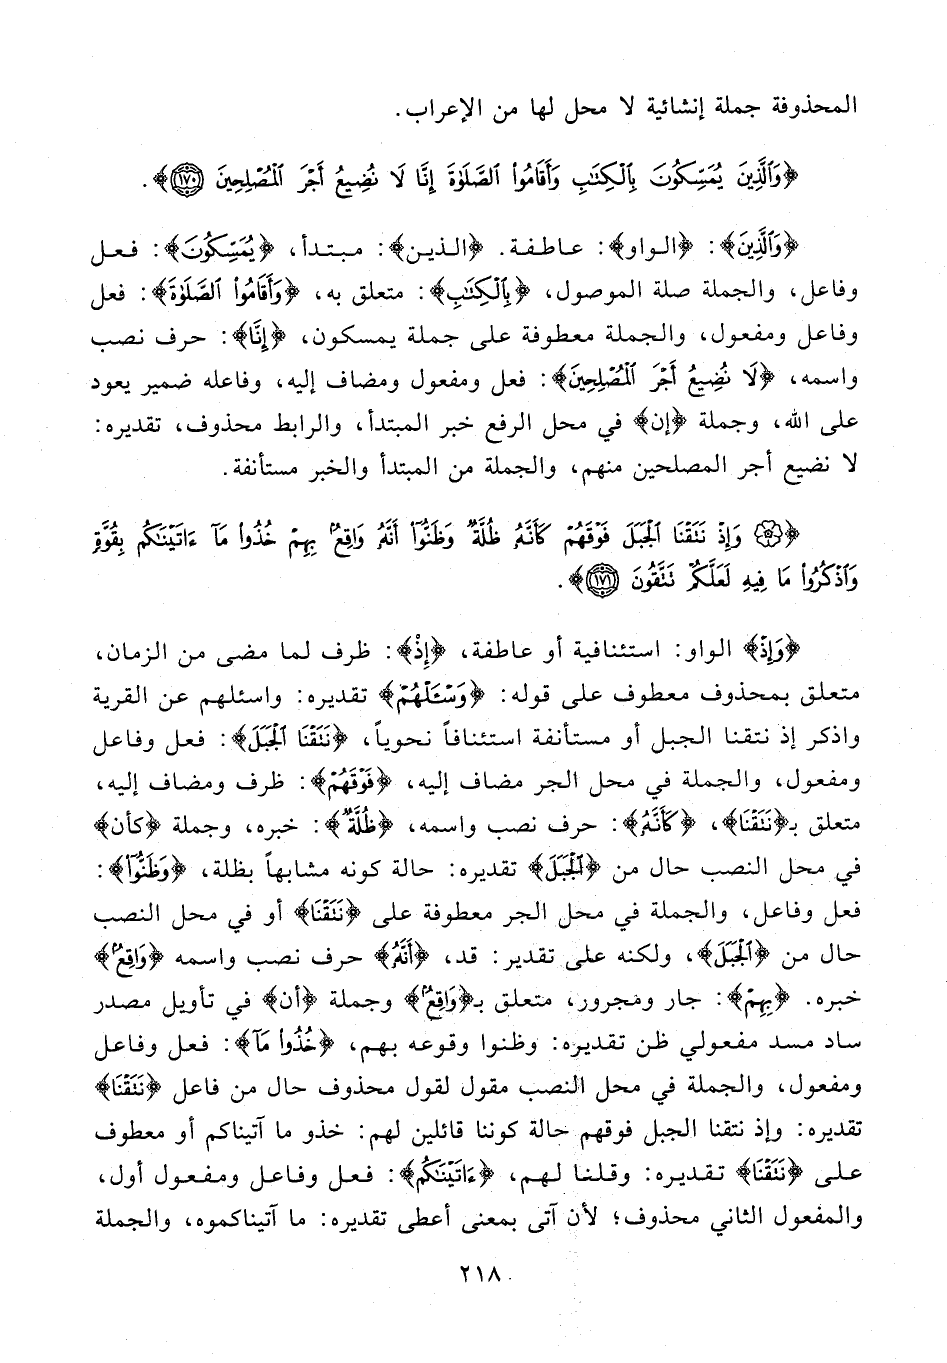 المحذوفة جملة إنشائية لا محل لها من الإعراب.
﴿وَٱلَّذِينَ يُمَسِّكُونَ بِٱلْكِتَٰبِ وَأَقَامُوا۟ ٱلصَّلَوٰةَ إِنَّا لَا نُضِيعُ أَجْرَ ٱلْمُصْلِحِينَ ١٧٠﴾.
﴿وَٱلَّذِينَ﴾: ﴿الواو﴾: عاطفة. ﴿الذين﴾: مبتدأ، ﴿يُمَسِّكُونَ﴾: فعل
وفاعل، والجملة صلة الموصول، ﴿بِٱلْكِتَٰبِ﴾: متعلق به، ﴿وَأَقَامُوا۟ ٱلصَّلَوٰةَ﴾: فعل
وفاعل ومفعول، والجملة معطوفة على جملة يمسكون، ﴿إِنَّا﴾: حرف نصب
واسمه، ﴿لَا نُضِيعُ أَجْرَ ٱلْمُصْلِحِينَ﴾: فعل ومفعول ومضاف إليه، وفاعله ضمير يعود
على الله، وجملة ﴿إن﴾ في محل الرفع خبر المبتدأ، والرابط محذوف، تقديره:
لا نضيع أجر المصلحين منهم، والجملة من المبتدأ والخبر مستأنفة.
﴿۞ وَإِذْ نَتَقْنَا ٱلْجَبَلَ فَوْقَهُمْ كَأَنَّهُۥ ظُلَّةٌ وَظَنُّوٓا۟ أَنَّهُۥ وَاقِعٌۢ بِهِمْ خُذُوا۟ مَآ ءَاتَيْنَٰكُم بِقُوَّةٍ
وَٱذْكُرُوا۟ مَا فِيهِ لَعَلَّكُمْ تَتَّقُونَ ١٧١﴾.
﴿وَإِذْ﴾ الواو: استئنافية أو عاطفة، ﴿إِذْ﴾: ظرف لما مضى من الزمان،
متعلق بمحذوف معطوف على قوله: ﴿وَسْـَٔلْهُمْ﴾ تقديره: واسئلهم عن القرية
واذكر إذ نتقنا الجبل أو مستأنفة استئنافاً نحوياً، ﴿نَتَقْنَا ٱلْجَبَلَ﴾: فعل وفاعل
ومفعول، والجملة في محل الجر مضاف إليه، ﴿فَوْقَهُمْ﴾: ظرف ومضاف إليه،
متعلق بـ﴿نَتَقْنَا﴾، ﴿كَأَنَّهُۥ﴾: حرف نصب واسمه، ﴿ظُلَّةٌ﴾: خبره، وجملة ﴿كأن﴾
في محل النصب حال من ﴿ٱلْجَبَلَ﴾ تقديره: حالة كونه مشابهاً بظلة، ﴿وَظَنُّوٓا۟﴾:
فعل وفاعل، والجملة في محل الجر معطوفة على ﴿نَتَقْنَا﴾ أو في محل النصب
حال من ﴿ٱلْجَبَلَ﴾، ولكنه على تقدير: قد، ﴿أَنَّهُۥ﴾ حرف نصب واسمه ﴿وَاقِعٌۢ﴾
خبره. ﴿بِهِمْ﴾: جار ومجرور، متعلق بـ﴿وَاقِعٌۢ﴾ وجملة ﴿أن﴾ في تأويل مصدر
ساد مسد مفعولي ظن تقديره: وظنوا وقوعه بهم، ﴿خُذُوا۟ مَآ﴾: فعل وفاعل
ومفعول، والجملة في محل النصب مقول لقول محذوف حال من فاعل ﴿نَتَقْنَا﴾
تقديره: وإذ نتقنا الجبل فوقهم حالة كوننا قائلين لهم: خذو ما آتيناكم أو معطوف
على ﴿نَتَقْنَا﴾ تقديره: وقلنا لهم، ﴿ءَاتَيْنَٰكُم﴾: فعل وفاعل ومفعول أول،
والمفعول الثاني محذوف؛ لأن آتى بمعنى أعطى تقديره: ما آتيناكموه، والجملة
٢١٨